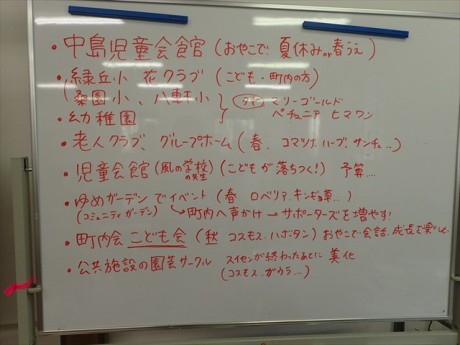 ・中島児童会館(おやこで 夏休みor春うえ)
・緑丘小 花クラブ (こども・町内の方)
(桑園小、八軒小
マリーゴールド
・幼稚園
ペチュニア ヒマワリ
・老人クラブ、グループホーム(春、コマツナ、ハーブ、サンチュ..)
・児童会館(風の学校の先生)(こどもが落ちつく!) 予算...
・ゆめガーデンでイベント(春 ロベリア、キンギョ草...)
(コミュニティガーデン)→町内へ声かけ→サポーターズを増やす!
・町内会 こども会(秋 コスモス、ハボタン)おやこで会話、成長を楽しむ
・公共施設の園芸サークル スイセンが終わったあとに 美化
(コスモス、ガウラ...)